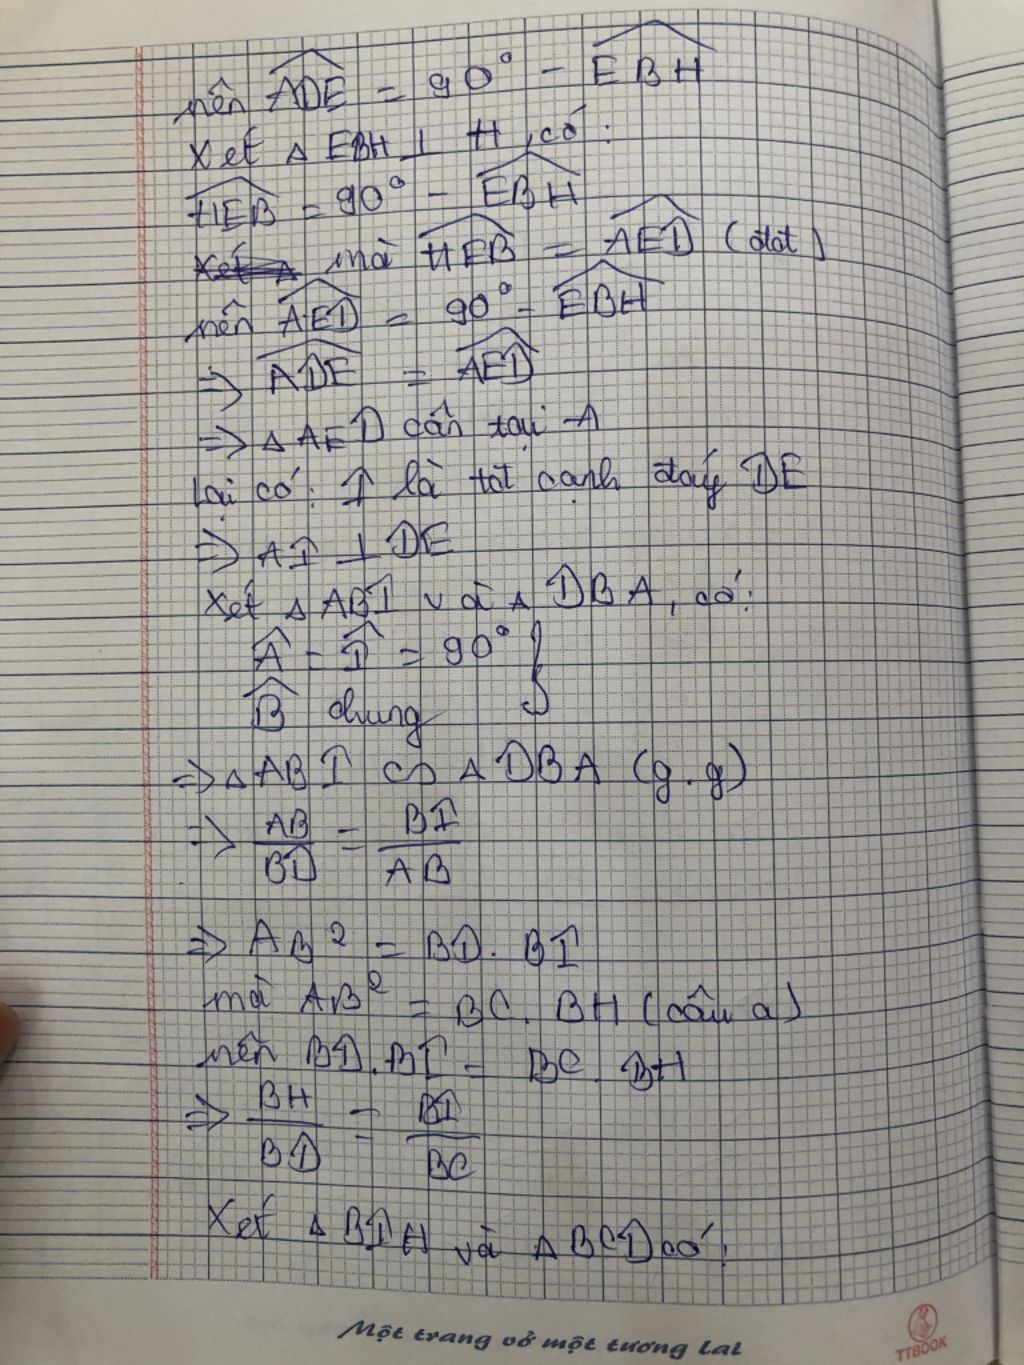 nên ADE = 90° - EBH
Xét △ EBH ⊥ H, có:
HEB = 90° - EBH
Xét △ mà HEB = AED (đđ)
nên AED = 90° - EBH
=> ADE = AED
=> △ AED cân tại A
Lại có: I là tđ cạnh đáy DE
=> AI ⊥ DE
Xét △ ABI và △ DBA, có:
A = I = 90° }
B chung
=> △ ABI ∽ △ DBA (g.g)
=> AB/BD = BI/AB
=> AB² = BD. BI
mà AB² = BC. BH (câu a)
nên BD.BI = BC. BH
=> BH/BD = BI/BC
Xét △ BIH và △ BCD có:
Một trang vở một tương lai
TTBOOK